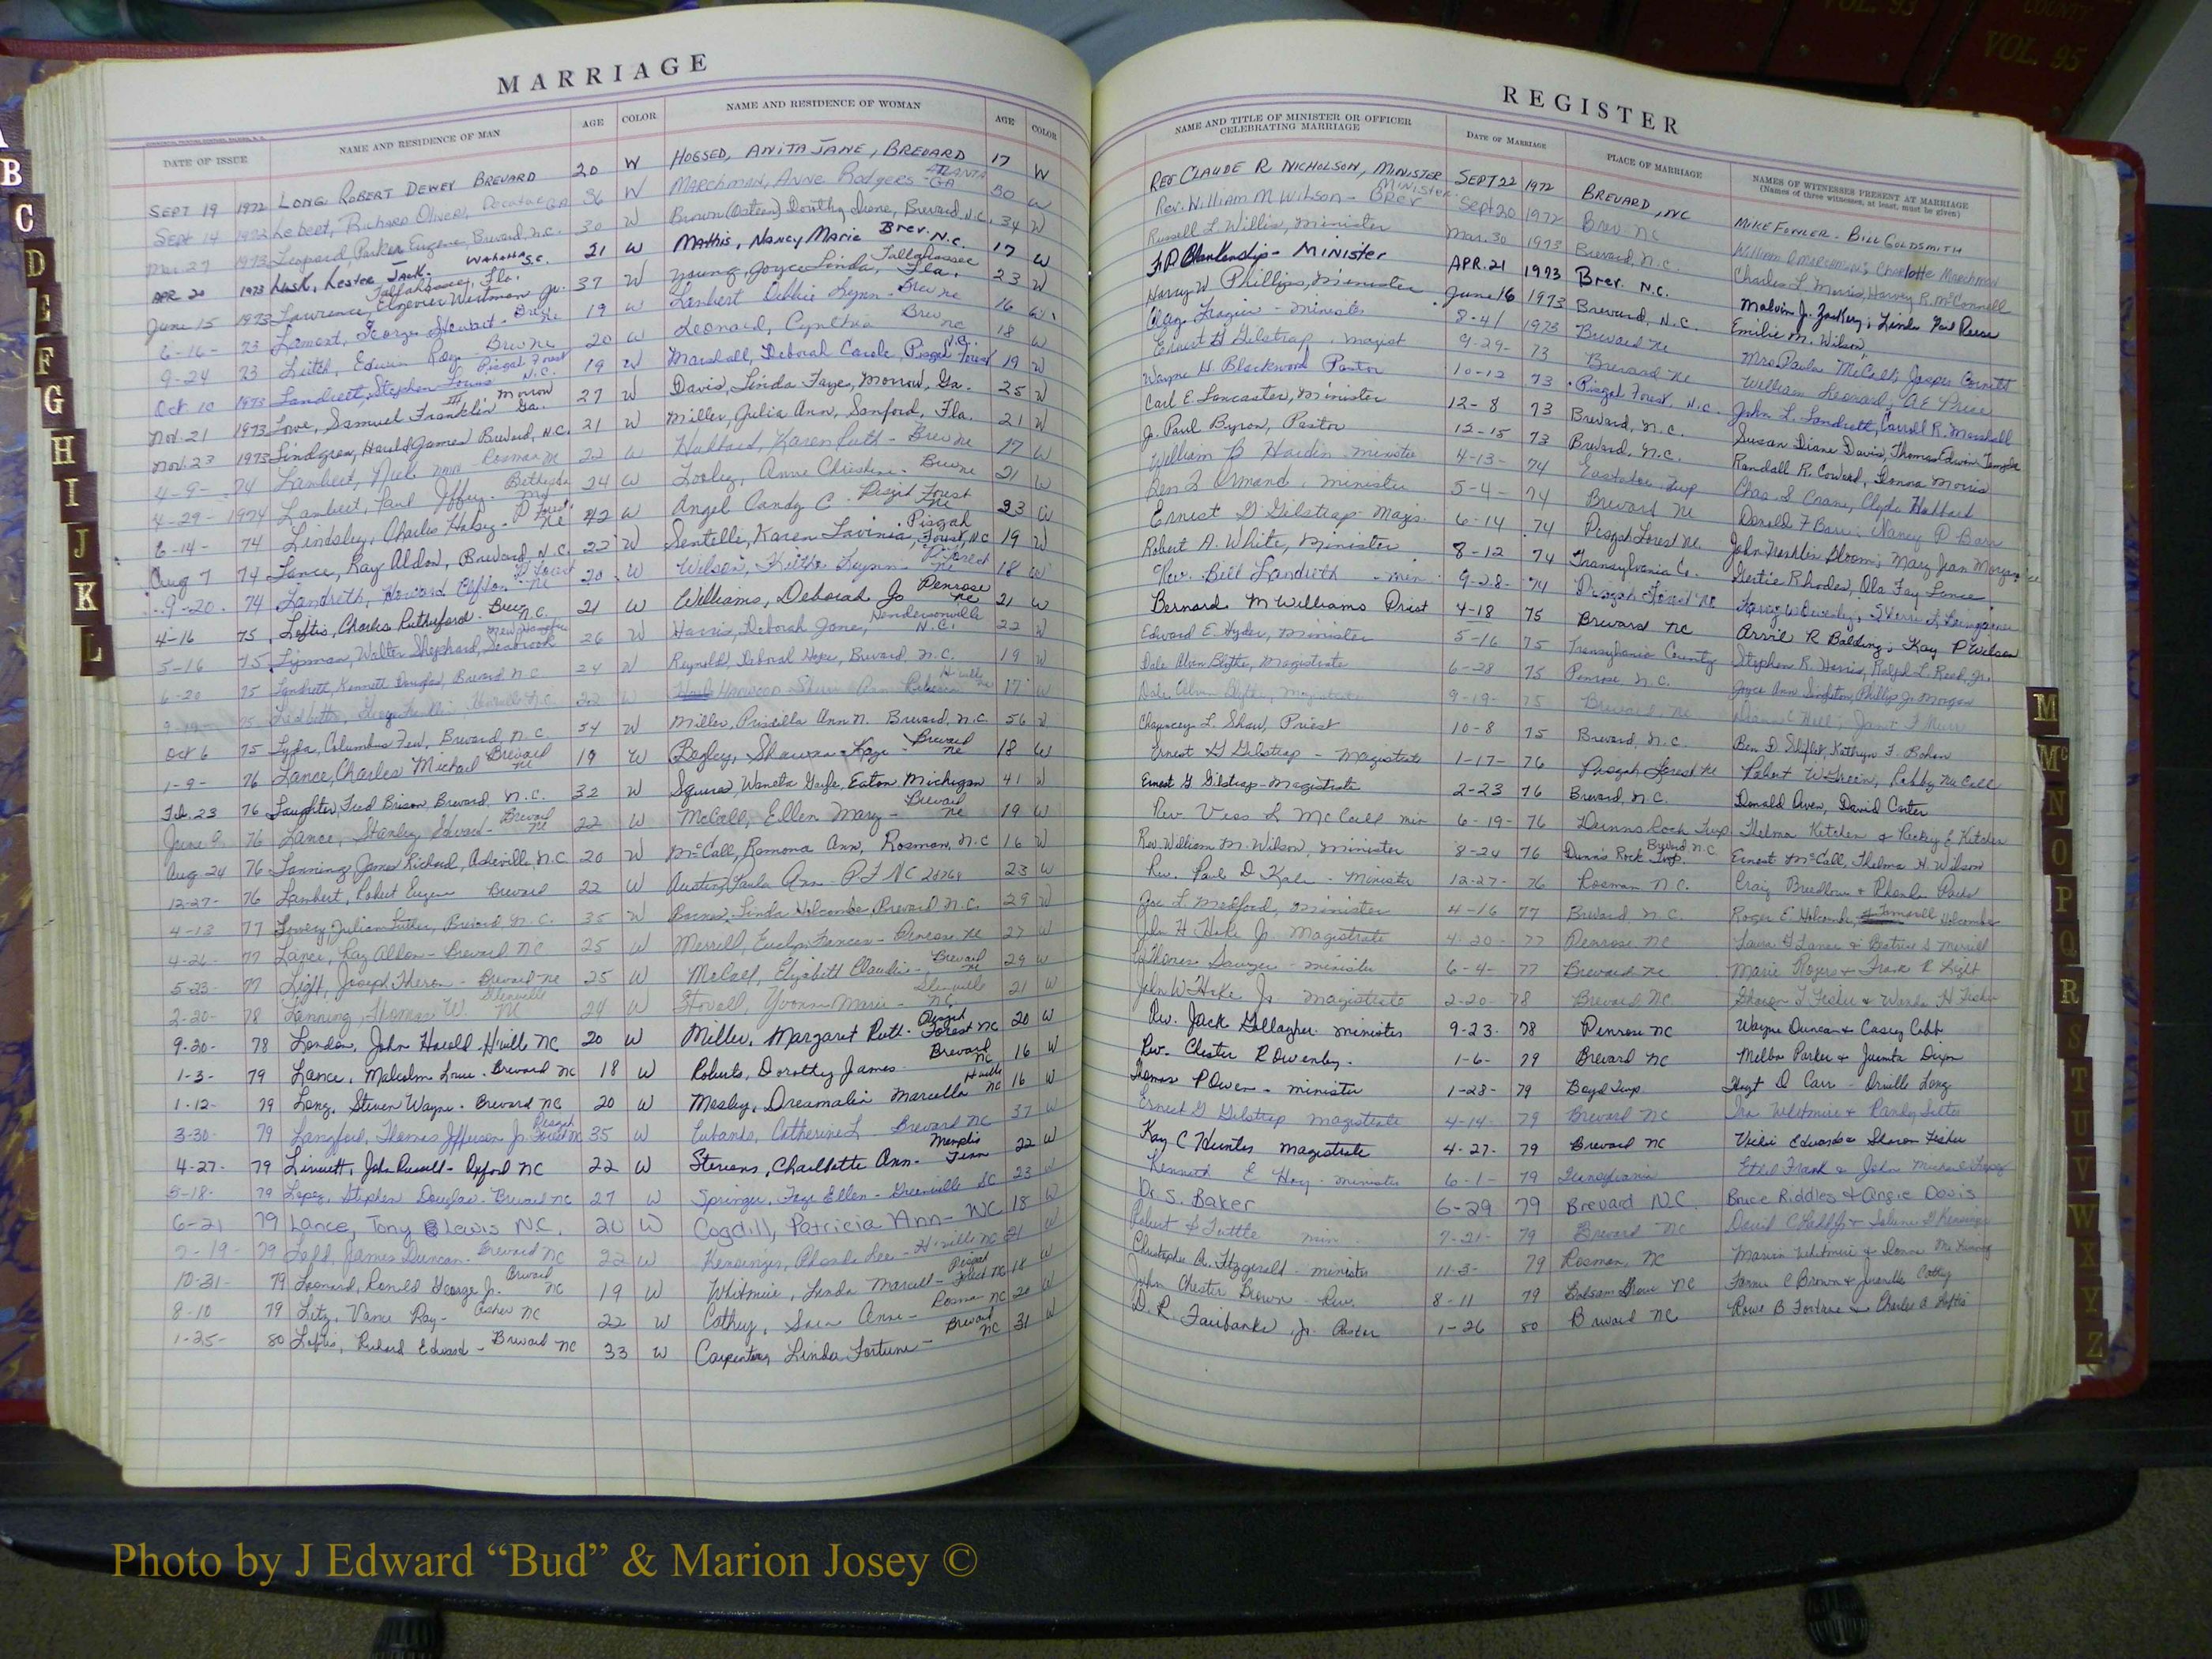 VOL. 93
COUNTY
VOL. 95
MARRIAGE
DATE OF ISSUE NAME AND RESIDENCE OF MAN AGE COLOR NAME AND RESIDENCE OF WOMAN AGE COLOR
SEPT 19 1972 LONG ROBERT DEWEY BREVARD 20 W HOGSED, ANITA JANE, BREVARD 17 W
SEPT 14 1972 Lebeet, Richard Oliver, Decatur GA 36 W MARCHMAN, ANNE Rodgers - ATLANTA GA 50 W
Mar. 27 1973 Leopard, Parker Eugene, Brevard, N.C. 30 W Brown (Osteen) Dorothy Diane, Brevard, N.C. 34 W
APR 20 1973 Lusk, Lester Jack. Walhalla S.C. 21 W Mathis, Nancy Marie Brev. N.C. 17 W
June 15 1973 Lawrence, Wertman Jr. Tallahassee, Fla. 37 W Young, Joyce Linda, Tallahassee Fla. 23 W
6-16- 73 Lamont, George Stewart - Bre NC 19 W Lambert Debbie Lynn - Brev NC 16 W
9-24 73 Leitch, Edwin Ray Brev NC 20 W Leonard, Cynthia Brev NC 18 W
Oct 10 1973 Landreth, Stephen Louis Pisgah Forest N.C. 19 W Marshall, Deborah Carole Pisgah Forest N.C. 19 W
Nov. 21 1973 Lowe, Samuel Franklin III Morrow Ga. 27 W Davis, Linda Faye, Morrow, Ga. 25 W
Nov. 23 1973 Lindgren, Harold James Brevard, N.C. 21 W Miller, Julia Ann, Sanford, Fla. 21 W
4-9- 74 Lambert, Nick nmn - Rosman NC 22 W Hubbard, Karen Ruth - Brev NC 17 W
4-29- 1974 Lambert, Paul Jeffrey - Bethesda Md 24 W Looley, Anne Christine - Brev NC 21 W
6-14- 74 Lindsley, Charles Halsey - P Forest NC 42 W Angel Candy C. Pisgah Forest NC 23 W
Aug 7 74 Lance, Ray Aldon, Brevard, N.C. 22 W Sentelle, Karen Lavinia, Pisgah Forest, NC 19 W
9-20 74 Landreth, Howard Clifton P Forest NC 20 W Wilson, Keitha Lynn P Forest NC 18 W
4-16 75 Loftis, Charles Rutherford - Brev N.C. 21 W Williams, Deborah Jo Penrose NC 21 W
5-16 75 Lipman, Walter Shephard, Seabrook New Hampshire 26 W Harris, Deborah Jane, Hendersonville N.C. 22 W
6-20 75 Landreth, Kenneth Douglas, Brevard N.C 24 W Reynolds, Deborah Hope, Brevard, N.C. 19 W
75 Ledbetter, N.C. 22 W Ann 17 W
Oct 6 75 Lyda, Columbus Few, Brevard, N.C. 54 W Miller, Priscilla Ann N. Brevard, N.C. 56 W
1-9- 76 Lance, Charles Michael Brevard NC 19 W Bagley, Shawna Kaye - Brevard NC 18 W
Feb. 23 76 Laughter, Fred Brison, Brevard, N.C. 32 W Squires, Waneta Gayle, Eaton Michigan 41 W
June 9 76 Lance, Stanley Edward - Brevard NC 22 W McCall, Ellen Mary - Brevard NC 19 W
Aug 24 76 Lanning, James Richard, Asheville, N.C. 20 W McCall, Ramona Ann, Rosman, N.C 16 W
12-27- 76 Lambert, Robert Eugene Brevard 22 W Austin, Paula Ann - P F NC 28768 23 W
4-13 77 Lowery Julian Luther, Brevard N.C. 35 W Barnes, Linda Holcombe, Brevard N.C. 29 W
4-26- 77 Lance, Ray Aldon - Brevard NC 25 W Merrell, Evelyn Frances - Penrose NC 27 W
5-23- 77 Light, Joseph Theron - Brevard NC 25 W McCall, Elizabeth Claudia - Brevard NC 29 W
2-20- 78 Lanning, Thomas W. Glenville NC 24 W Stovall, Yvonne Marie - Glenville NC 21 W
9-20- 78 London, John Harold H'ville NC 20 W Miller, Margaret Ruth - Pisgah Forest NC 20 W
1-3- 79 Lance, Malcolm Lowe - Brevard NC 18 W Roberts, Dorothy James Brevard NC 16 W
1-12- 79 Long, Steven Wayne - Brevard NC 20 W Mosley, Dreamalin Marcella H'ville NC 16 W
3-30- 79 Langford, Thomas Jefferson Jr. Pisgah Forest NC 35 W Eubanks, Catherine L. Brevard NC 37 W
4-27- 79 Linnett, John Russell - Oxford NC 22 W Stevens, Charllotte Ann - Memphis Tenn 22 W
5-18- 79 Lopez, Stephen Douglas - Brevard NC 27 W Springer, Faye Ellen - Greenville SC 23 W
6-21 79 Lance, Tony Lewis NC. 20 W Cogdill, Patricia Ann - NC 18 W
7-19- 79 Ladd James Duncan - Brevard NC 22 W Kensinger, Rhonda Lee - H'ville NC 21 W
10-31- 79 Leonard, Ronald George Jr. Brevard NC 19 W Whitmire, Linda Marcell - Pisgah Forest NC 18 W
8-10 79 Litz, Vance Ray - Asher NC 22 W Cathey, Sara Anne - Rosman NC 20 W
1-25- 80 Loftis, Richard Edward - Brevard NC 33 W Carpenter, Linda Fortune - Brevard NC 31 W
REGISTER
NAME AND TITLE OF MINISTER OR OFFICER CELEBRATING MARRIAGE DATE OF MARRIAGE PLACE OF MARRIAGE NAMES OF WITNESSES PRESENT AT MARRIAGE
(Names of three witnesses, at least, must be given)
REV CLAUDE R NICHOLSON, MINISTER SEPT 22 1972 BREVARD, NC MIKE FOWLER - BILL GOLDSMITH
Rev. William M Wilson - Brev Minister Sept 20 1972 Brev. NC William Marchman; Charlotte Marchman
Russell L Willis, Minister Mar. 30 1973 Brevard, N.C. Charles L. Morris, Harvey R. McConnell
F.D Blankenship - Minister APR. 21 1973 Brev. N.C. Malvin J. Zackery; Linda Reese
Harry W Phillips, Minister June 16 1973 Brevard, N.C. Emilie M. Wilson,
Clay Frazier - minister 1973 Brevard NC Mrs Paula McCall; Jasper
Ernest G Gilstrap, magist 9-29- 73 Brevard NC William Leonard, A E Price
Wayne H. Blackwood Pastor 10-13 73 Pisgah Forest, N.C. John L. Landreth, Carroll R. Marshall
Carl E. Lancaster, Minister 12-8 73 Brevard, N.C. Susan Diane Davis, Thomas Edwin Temple
J. Paul Byron, Pastor 12-15 73 Brevard, N.C. Randall R. Coward, Donna Morris
William B Hardin - minister 4-13- 74 Eastatoe Twp Chas. S Crane, Clyde Hubbard
Ben L Ormand, minister 5-4- 74 Brevard NC Donald F Barr; Nancy D Barr
Ernest G Gilstrap - Magis. 6-14 74 Pisgah Forest NC. John Bloom; Mary Jean Morgan
Robert A. White, Minister 8-12 74 Transylvania Co. Gertie Rhodes, Ola Fay Lance
Rev. Bill Landreth - min 9-28- 74 Pisgah Forest NC
Bernard M Williams Priest 4-18 75 Brevard NC Arvil R Balding; Kay P Wilson
Edward E. Hyder, Minister 5-16 75 Transylvania County Stephen R. Harris, Ralph L. Reed, Jr.
Dale Alvin Blythe, Magistrate 6-28 75 Penrose N.C. Joyce Ann Singleton, Phillip J. Morgan
Dale Alvin Blythe, Magistrate 9-19- 75 Brevard, NC
Chauncey L. Shaw, Priest 10-8 75 Brevard, N.C. Ben D. Kathryn F. Bohan
Ernest G Gilstrap - Magistrate 1-17- 76 Pisgah Forest NC Robert W Green, Robby McCall
Ernest G Gilstrap - Magistrate 2-23 76 Brevard, N.C. Donald Owen, David Carter
Rev Vess L McCall min 6-19- 76 Dunns Rock Twp Thelma Ketchen & E Ketchen
Rev. William M. Wilson, Minister 8-24 76 Dunn's Rock Twp. Brevard N.C. Ernest McCall, Thelma H. Wilson
Rev. Paul D Kale - Minister 12-27- 76 Rosman N.C. Craig Breedlove & Rhonda
Joe L. Medford, Minister 4-16 77 Brevard N.C. Roger E. Holcombe, Holcombe
John H Hake Jr. Magistrate 4-20- 77 Penrose NC Laura G Lance & Beatrice S. Merrill
Thomas Sawyer - minister 6-4- 77 Brevard NC Marie Rogers & Frank R Light
John W Hake Jr. magistrate 2-20- 78 Brevard NC. Sharon T Fisher & Wanda H Fisher
Rev. Jack Gallagher - minister 9-23- 78 Penrose NC Wayne Duncan & Casey Cobb
Rev. Chester R Owenby. 1-6- 79 Brevard NC Melba Parker & Juanita Dixon
Thomas P Owen - minister 1-28- 79 Boyd Twp. Hoyt D Carr - Orville Long
Ernest G Gilstrap magistrate 4-14- 79 Brevard NC Ira Whitmire & Randy Sitton
Kay C Hunter magistrate 4-27- 79 Brevard NC Vickie Edwards & Sharon Fisher
Kenneth E Hoy - minister 6-1- 79 Transylvania Ethel Frank & John Michael Lopez
Dr S. Baker 6-29 79 Brevard N.C. Bruce Riddles & Angie Davis
Robert G Tuttle min. 7-21- 79 Brevard NC David C Ladd Jr &
Christopher A. Fitzgerald - minister 11-3- 79 Rosman, NC Marian Whitmire & Donna
John Chester Brown - Rev. 8-11 79 Balsam Grove NC Fannie C Brown & Juanita Cathey
D. R Fairbanks, Jr. Pastor 1-26 80 Brevard NC Rowe B Fortune & Charles A Loftis
B
C
D
E
F
G
H
I
J
K
L
M
Mc
N
O
P
Q
R
S
T
U
V
W
X
Y
Z
Photo by J Edward “Bud” & Marion Josey ©